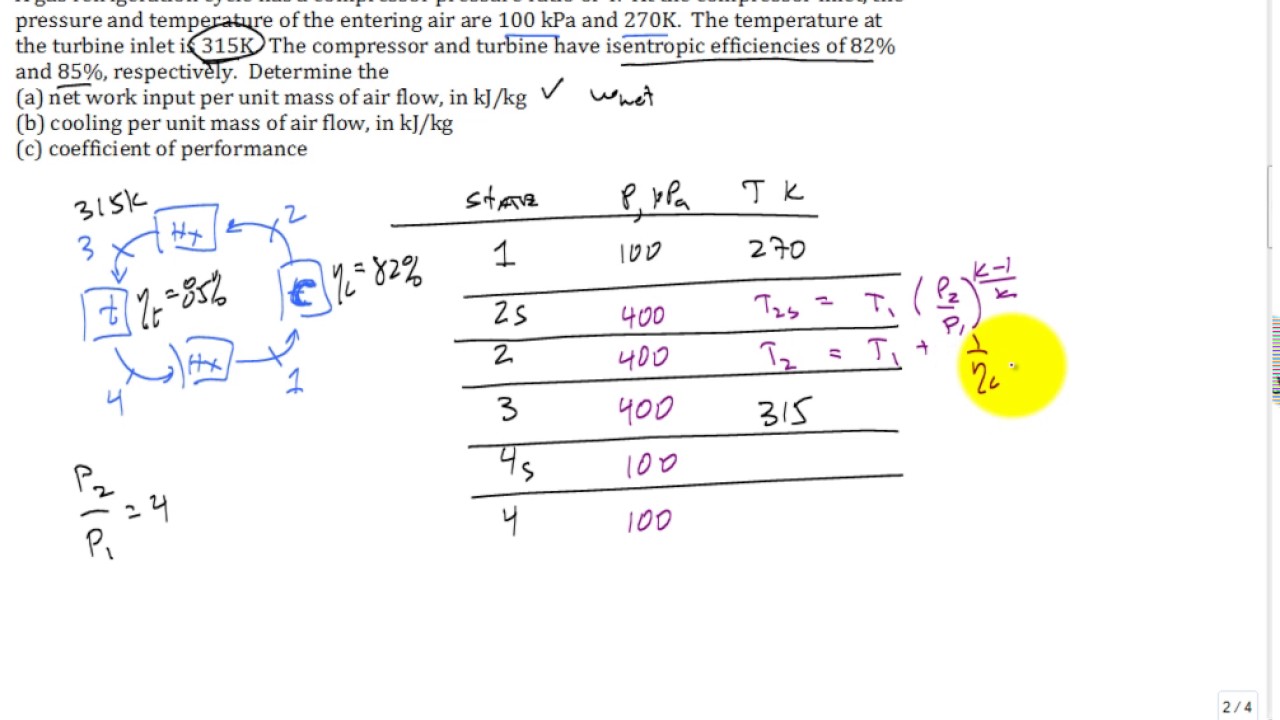 pressure and temperature of the entering air are 100 kPa and 270K. The temperature at
the turbine inlet is 315K. The compressor and turbine have isentropic efficiencies of 82%
and 85%, respectively. Determine the
(a) net work input per unit mass of air flow, in kJ/kg ✓ wnet
(b) cooling per unit mass of air flow, in kJ/kg
(c) coefficient of performance
315K
Hx
2
3
t
ηt = 85%
c
ηc = 82%
Hx
4
1
P2/P1 = 4
State P, kPa T K
1 100 270
2s 400 T2s = T1 (P2/P1)^(k-1/k)
2 400 T2 = T1 + 1/ηc
3 400 315
4s 100
4 100
2 / 4